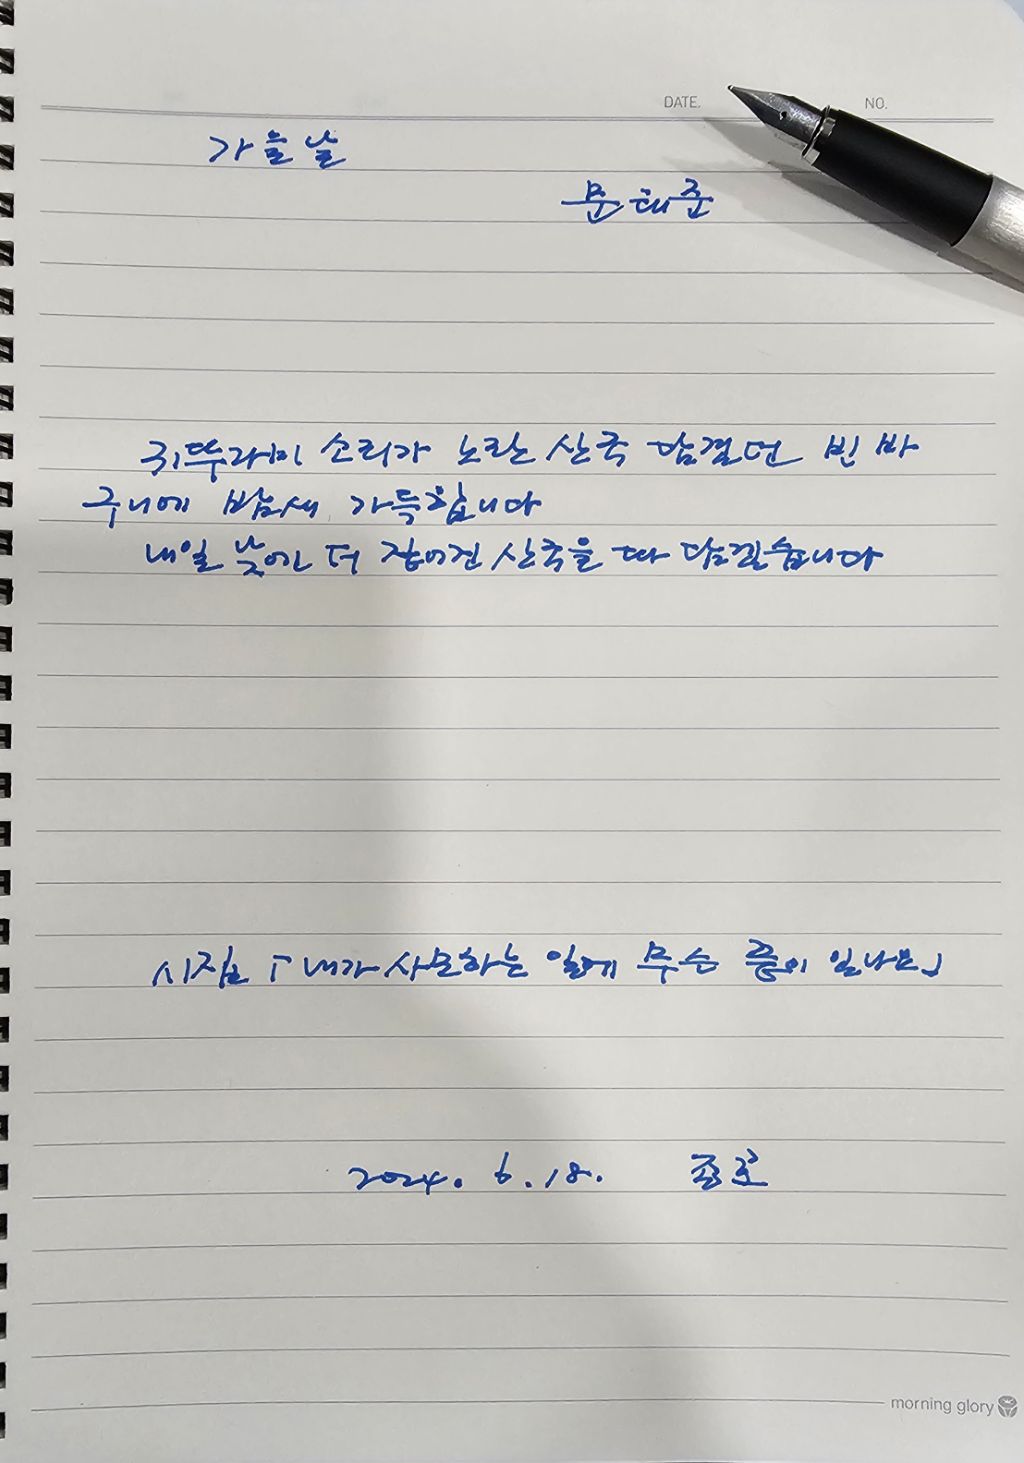 DATE. NO.
가을날
문태준
귀뚜라미 소리가 노란 산국 담겼던 빈 바
구니에 밤새 가득합니다
내일 낮에는 더 짙어진 산국을 따 담겠습니다
시집 「내가 사모하는 일에 무슨 끝이 있나요」
2024. 6. 18. 종로
morning glory